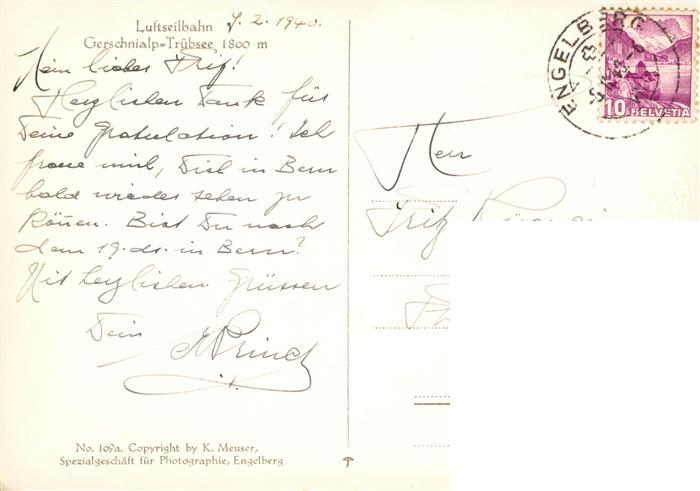 Luftseilbahn
Gerschnialp=Trübsee 1800 m
9. 2. 1940.
Mein lieber Fritz!
Herzlichen Dank für
Deine Gratulation! Ich
freue mich, Dich in Bern
bald wieder sehen zu
können. Bist Du nach
dem 19. ds. in Bern?
Mit herzlichen Grüssen
Dein
No. 109a. Copyright by K. Meuser,
Spezialgeschäft für Photographie, Engelberg
ENGELBERG
10 HELVETIA
Herr
Fritz